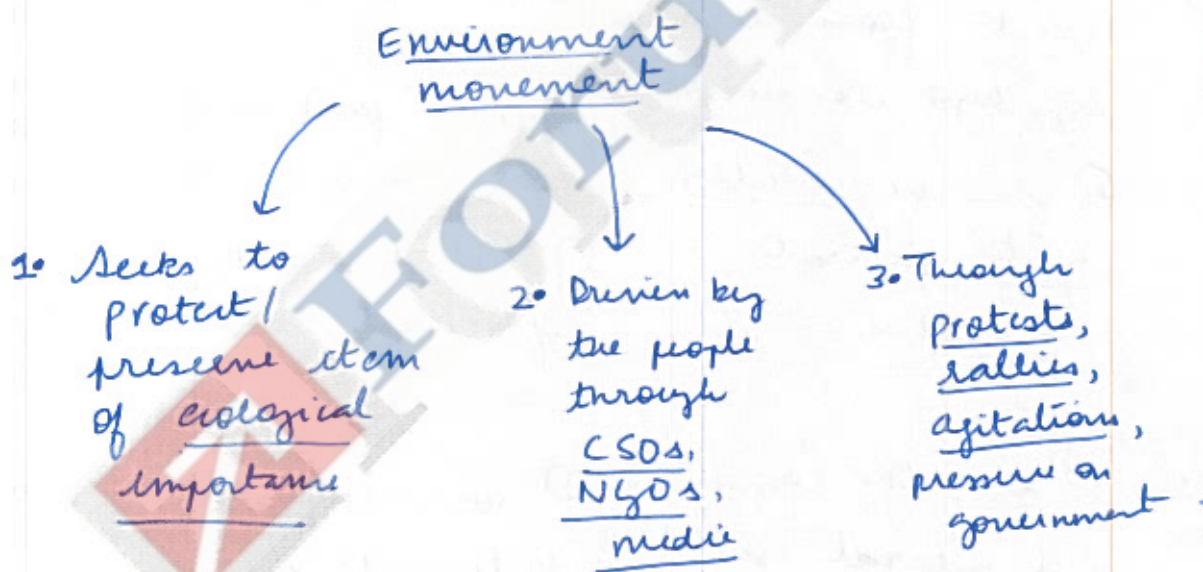 Environment
movement
1. Seeks to
protect/
preserve item
of ecological
importance
2. Driven by
the people
through
CSOs,
NGOs,
media
3. Through
protests,
rallies,
agitations,
pressure on
government.
Forum